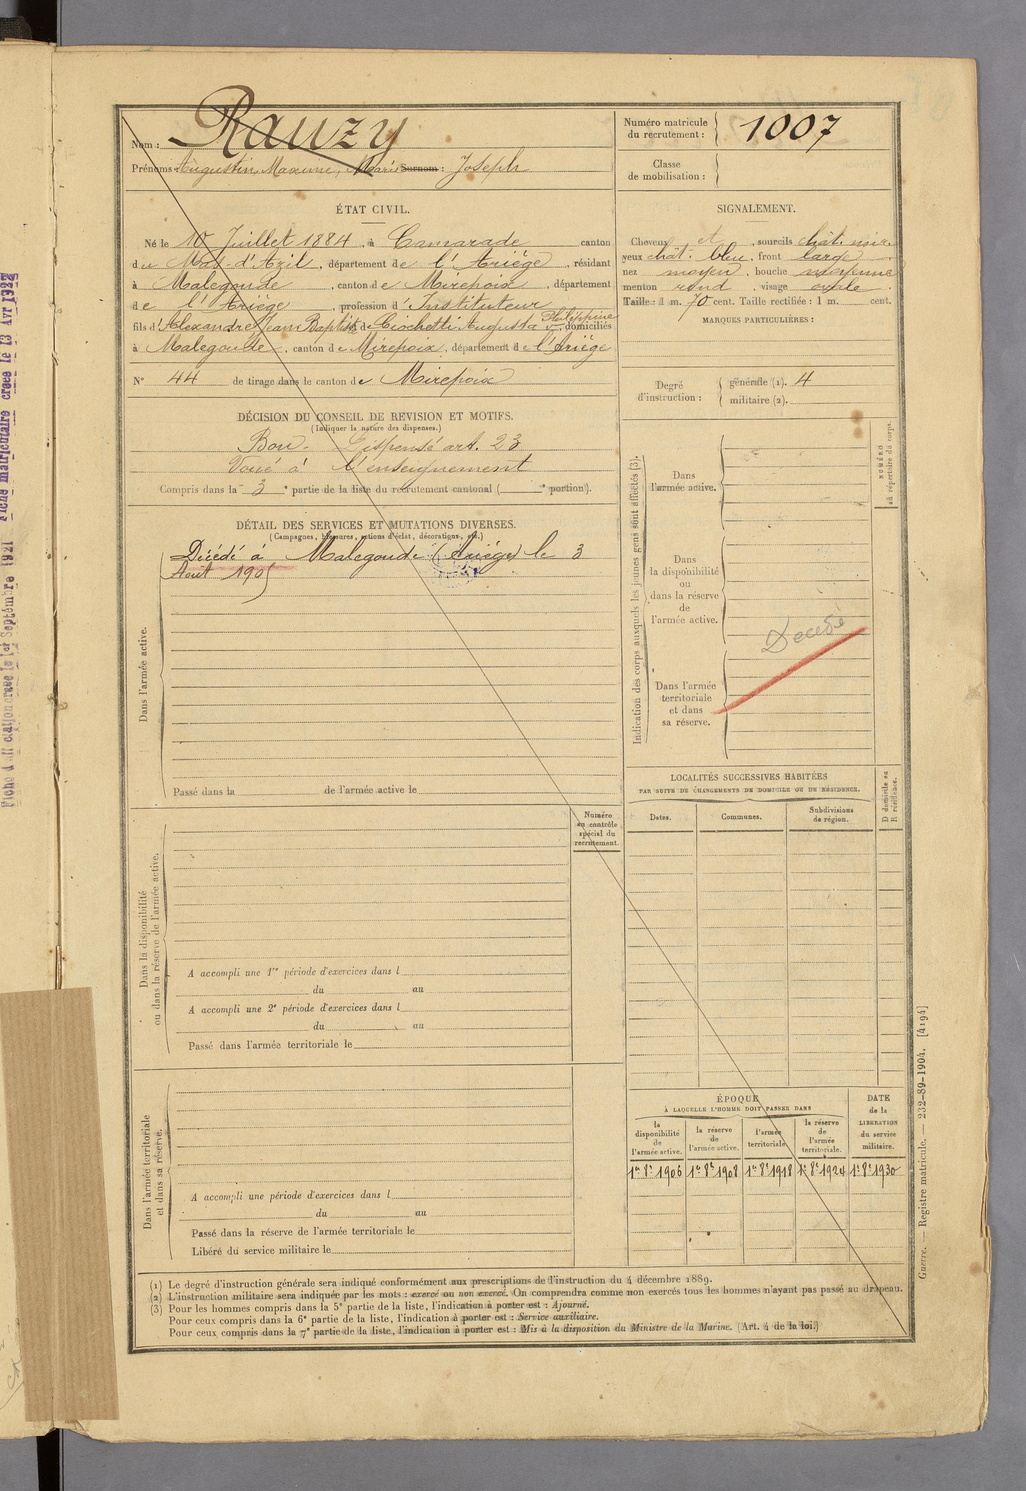 Nom : Rauzy
Prénoms : Augustin, Maxime, Marie Surnom : Joseph
Numéro matricule du recrutement : 1007
Classe de mobilisation :
ÉTAT CIVIL.
Né le 10 Juillet 1884, à Camarade canton
du Mas-d'Azil, département de l'Ariège, résidant
à Malegoude, canton de Mirepoix, département
de l'Ariège, profession d'Instituteur
fils d'Alexandre Jean Baptiste et de Ciochetti Augusta Philippine, domiciliés
à Malegoude, canton de Mirepoix, département de l'Ariège
N° 44 de tirage dans le canton de Mirepoix
SIGNALEMENT.
Cheveux et, sourcils chât. noir.
yeux chât. bleu, front large
nez moyen, bouche moyenne
menton rond, visage ovale.
Taille : 1 m. 70 cent. Taille rectifiée : 1 m. cent.
MARQUES PARTICULIÈRES :
Degré d'instruction : générale (1). 4
militaire (2).
DÉCISION DU CONSEIL DE REVISION ET MOTIFS.
(Indiquer la nature des dispenses.)
Bon. Dispensé art. 23
Voué à l'enseignement
Compris dans la 3e partie de la liste du recrutement cantonal ( e portion).
DÉTAIL DES SERVICES ET MUTATIONS DIVERSES.
(Campagnes, blessures, actions d'éclat, décorations, etc.)
Décédé à Malegoude (Ariège) le 3
Août 1905
Dans l'armée active.
Passé dans la de l'armée active le
Indication des corps auxquels les jeunes gens sont affectés (3).
Dans l'armée active.
Dans la disponibilité ou dans la réserve de l'armée active.
Décédé
Dans l'armée territoriale et dans sa réserve.
NUMÉRO au répertoire du corps.
LOCALITÉS SUCCESSIVES HABITÉES
PAR SUITE DE CHANGEMENTS DE DOMICILE OU DE RÉSIDENCE.
Dates. Communes. Subdivisions de région.
D domicile ou R résidence.
Numéro au contrôle spécial du recrutement.
Dans la disponibilité ou dans la réserve de l'armée active.
A accompli une 1re période d'exercices dans l
du au
A accompli une 2e période d'exercices dans l
du au
Passé dans l'armée territoriale le
Dans l'armée territoriale et dans sa réserve.
A accompli une période d'exercices dans l
du au
Passé dans la réserve de l'armée territoriale le
Libéré du service militaire le
ÉPOQUE
À LAQUELLE L'HOMME DOIT PASSER DANS
la disponibilité de l'armée active.
la réserve de l'armée active.
l'armée territoriale.
la réserve de l'armée territoriale.
DATE de la LIBÉRATION du service militaire.
1er 8e 1906 1er 8e 1908 1er 8e 1918 1er 8e 1924 1er 8e 1930
(1) Le degré d'instruction générale sera indiqué conformément aux prescriptions de l'instruction du 4 décembre 1889.
(2) L'instruction militaire sera indiquée par les mots : exercé ou non exercé. On comprendra comme non exercés tous les hommes n'ayant pas passé au drapeau.
(3) Pour les hommes compris dans la 5e partie de la liste, l'indication à porter est : Ajourné.
Pour ceux compris dans la 6e partie de la liste, l'indication à porter est : Service auxiliaire.
Pour ceux compris dans la 7e partie de la liste, l'indication à porter est : Mis à la disposition du Ministre de la Marine. (Art. 4 de la loi.)
Guerre. — Registre matricule. — 232-89-1904. [4194]
Fiche matriculaire créée le 13 Avr 1922
créée le 1er Septembre 1921